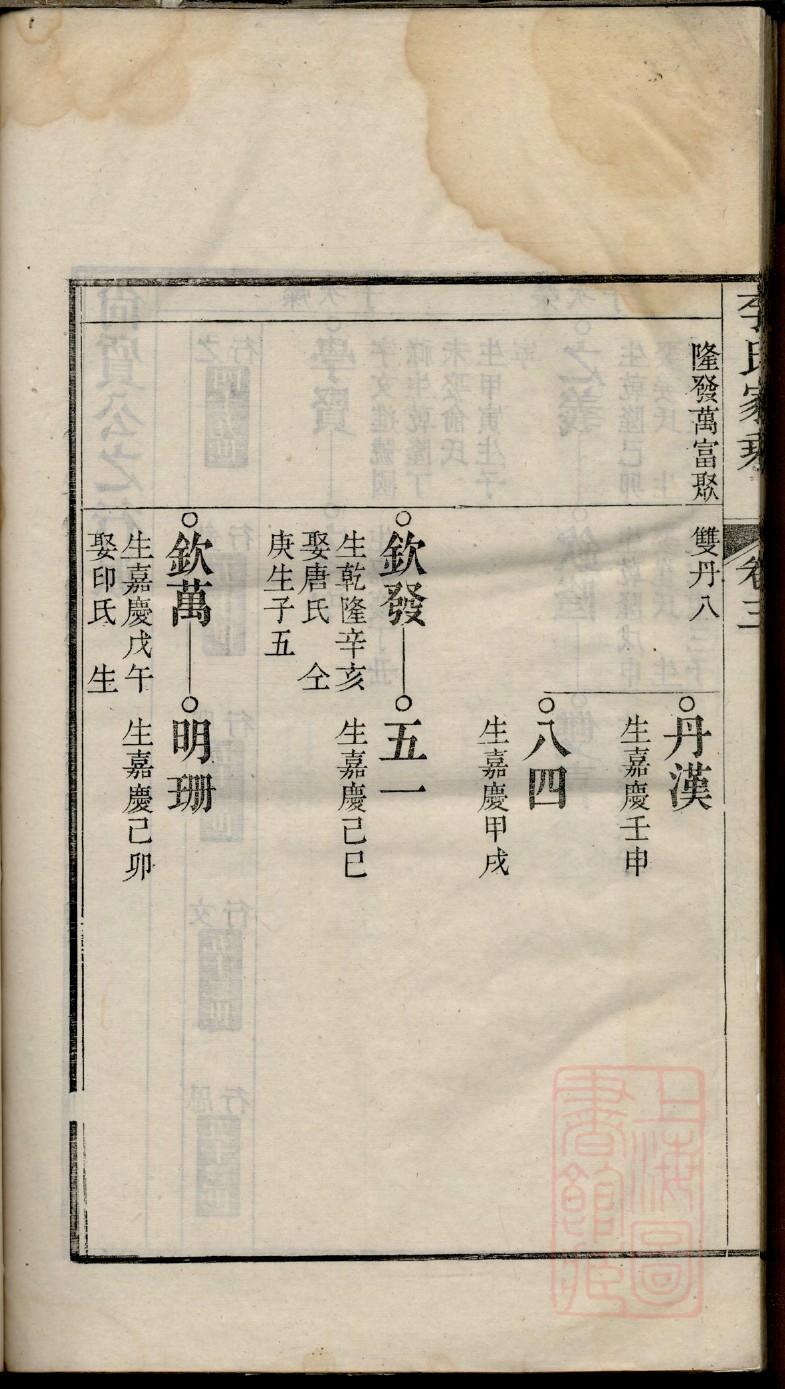 李氏家乘
卷三
隆發萬富聚
雙丹八
丹漢
生嘉慶壬申
八四
生嘉慶甲戌
欽發
生乾隆辛亥
娶唐氏 仝
庚生子五
五一
生嘉慶己巳
欽萬
生嘉慶戊午
娶印氏 生
明珊
生嘉慶己卯
上海圖
書館藏